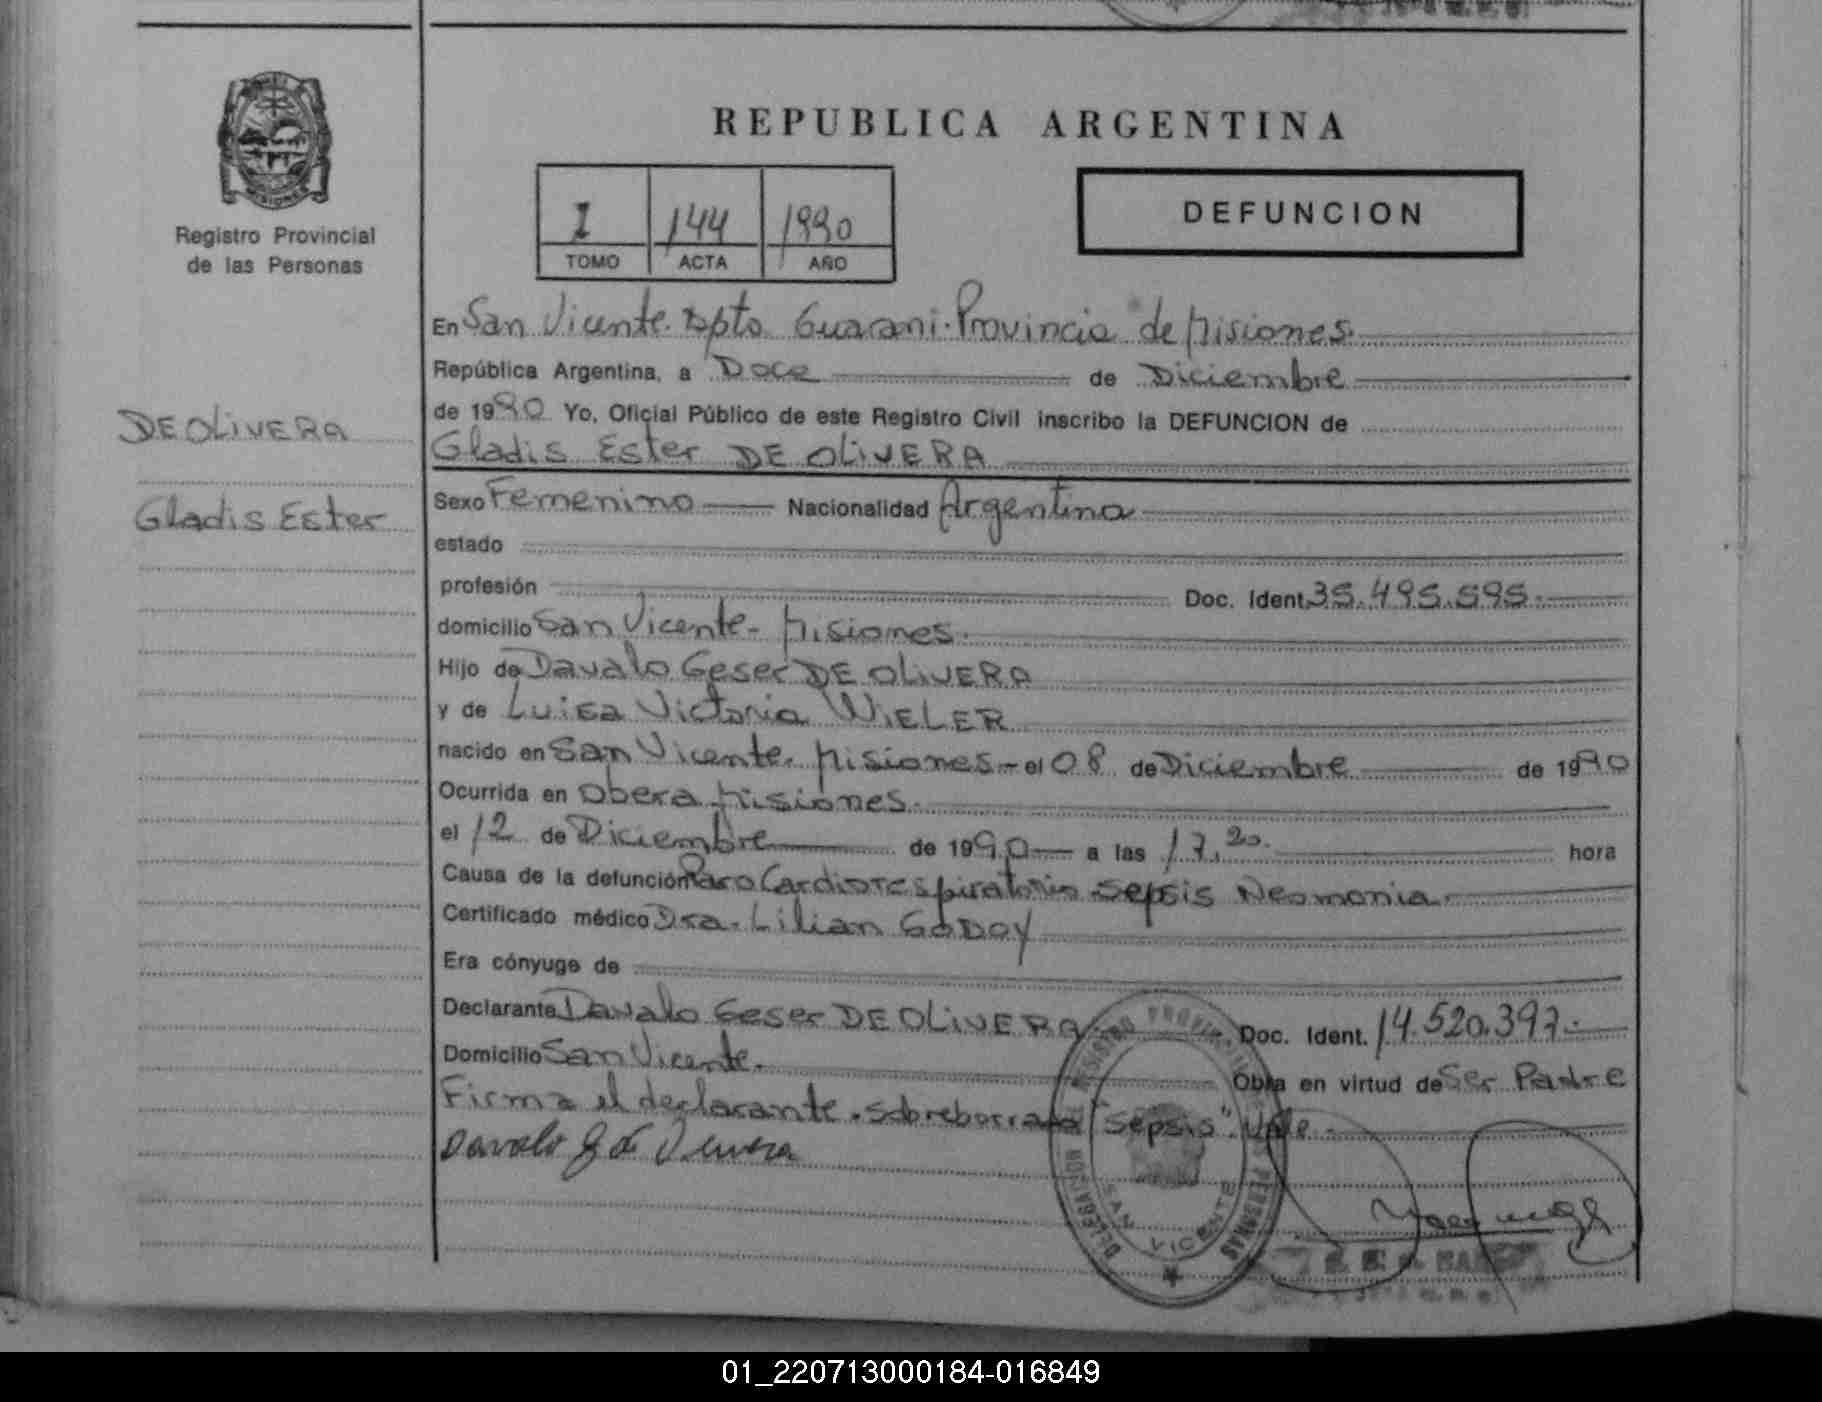 REPUBLICA ARGENTINA
MISIONES
Registro Provincial
de las Personas
1 144 1990
TOMO ACTA AÑO
DEFUNCION
DE OLIVERA
Gladis Ester
En San Vicente. Dpto Guarani. Provincia de Misiones.
República Argentina, a Doce de Diciembre
de 1990 Yo, Oficial Público de este Registro Civil inscribo la DEFUNCION de
Gladis Ester DE OLIVERA
Sexo Femenino Nacionalidad Argentina
estado
profesión Doc. Ident. 35.495.595.
domicilio San Vicente - Misiones.
Hijo de Davalo Geser DE OLIVERA
y de Luisa Victoria WIELER
nacido en San Vicente. Misiones - el 08 de Diciembre de 1990
Ocurrida en Obera Misiones.
el 12 de Diciembre de 1990 a las 17,20. hora
Causa de la defunción Paro Cardiorespiratorio Sepsis Neomonia.
Certificado médico Dra. Lilian GODOY
Era cónyuge de
Declarante Davalo Geser DE OLIVERA Doc. Ident. 14.520.397.
Domicilio San Vicente. Obra en virtud de Ser Padre
Firma el declarante. sobreborrado "sepsis". Vale.
Davalo G de Olivera
DELEGACION DEL REGISTRO PROVINCIAL DE LAS PERSONAS
SAN VICENTE
01_220713000184-016849